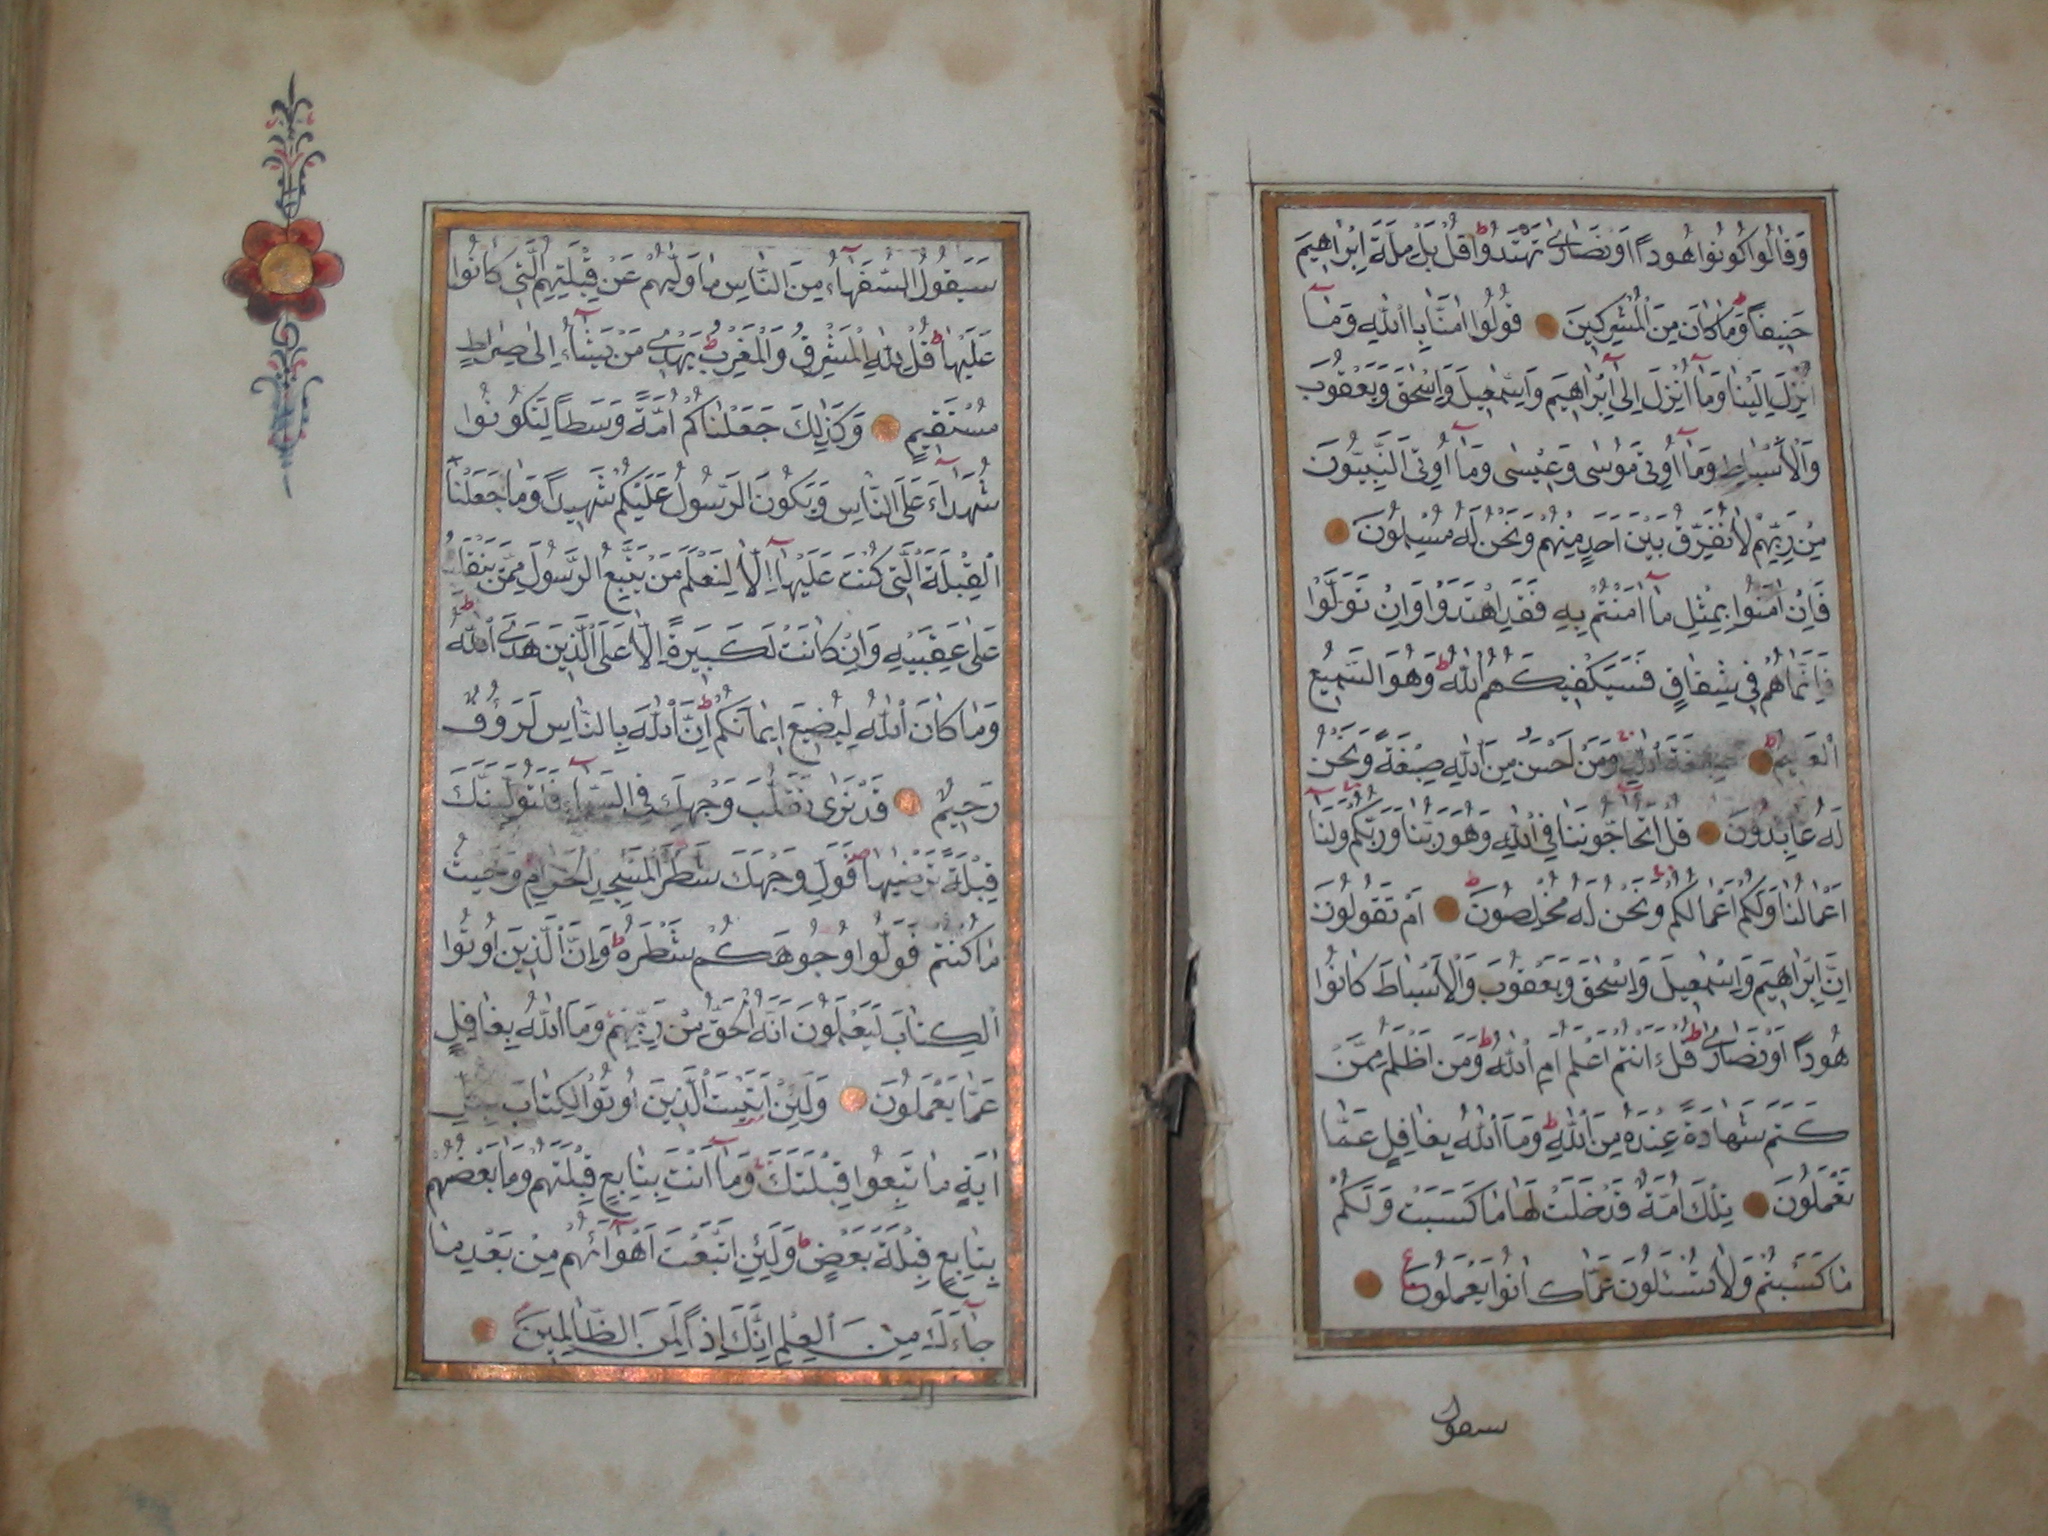 وَقَالُوا كُونُوا هُودًا اَوْ نَصَارٰى تَهْتَدُوا قُلْ بَلْ مِلَّةَ اِبْرٰاهِيمَ
حَنِيفًا وَمَا كَانَ مِنَ الْمُشْرِكِينَ قُولُوا اٰمَنَّا بِاللّٰهِ وَمَٓا
اُنْزِلَ اِلَيْنَا وَمَٓا اُنْزِلَ اِلٰٓى اِبْرٰاهِيمَ وَاِسْمٰعِيلَ وَاِسْحٰقَ وَيَعْقُوبَ
وَالْاَسْبَاطِ وَمَٓا اُوتِىَ مُوسٰى وَعِيسٰى وَمَٓا اُوتِىَ النَّبِيُّونَ
مِنْ رَبِّهِمْ لَا نُفَرِّقُ بَيْنَ اَحَدٍ مِنْهُمْ وَنَحْنُ لَهُ مُسْلِمُونَ
فَاِنْ اٰمَنُوا بِمِثْلِ مَٓا اٰمَنْتُمْ بِهِ فَقَدِ اهْتَدَوْا وَاِنْ تَوَلَّوْا
فَاِنَّمَا هُمْ فِى شِقَاقٍ فَسَيَكْفِيكَهُمُ اللّٰهُ وَهُوَ السَّمِيعُ
الْعَلِيمُ صِبْغَةَ اللّٰهِ وَمَنْ اَحْسَنُ مِنَ اللّٰهِ صِبْغَةً وَنَحْنُ
لَهُ عَابِدُونَ قُلْ اَتُحَٓاجُّونَنَا فِى اللّٰهِ وَهُوَ رَبُّنَا وَرَبُّكُمْ وَلَنَٓا
اَعْمَالُنَا وَلَكُمْ اَعْمَالُكُمْ وَنَحْنُ لَهُ مُخْلِصُونَ اَمْ تَقُولُونَ
اِنَّ اِبْرٰاهِيمَ وَاِسْمٰعِيلَ وَاِسْحٰقَ وَيَعْقُوبَ وَالْاَسْبَاطَ كَانُوا
هُودًا اَوْ نَصَارٰى قُلْ ءَاَنْتُمْ اَعْلَمُ اَمِ اللّٰهُ وَمَنْ اَظْلَمُ مِمَّنْ
كَتَمَ شَهَادَةً عِنْدَهُ مِنَ اللّٰهِ وَمَا اللّٰهُ بِغَافِلٍ عَمَّا
تَعْمَلُونَ تِلْكَ اُمَّةٌ قَدْ خَلَتْ لَهَا مَا كَسَبَتْ وَلَكُمْ
مَا كَسَبْتُمْ وَلَا تُسْـَٔلُونَ عَمَّا كَانُوا يَعْمَلُونَ ع
سيقول
سَيَقُولُ السُّفَهَٓاءُ مِنَ النَّاسِ مَا وَلّٰيهُمْ عَنْ قِبْلَتِهِمُ الَّتِى كَانُوا
عَلَيْهَا قُلْ لِلّٰهِ الْمَشْرِقُ وَالْمَغْرِبُ يَهْدِى مَنْ يَشَٓاءُ اِلٰى صِرَاطٍ
مُسْتَقِيمٍ وَكَذٰلِكَ جَعَلْنَاكُمْ اُمَّةً وَسَطًا لِتَكُونُوا
شُهَدَٓاءَ عَلَى النَّاسِ وَيَكُونَ الرَّسُولُ عَلَيْكُمْ شَهِيدًا وَمَا جَعَلْنَا
الْقِبْلَةَ الَّتِى كُنْتَ عَلَيْهَٓا اِلَّا لِنَعْلَمَ مَنْ يَتَّبِعُ الرَّسُولَ مِمَّنْ يَنْقَلِبُ
عَلٰى عَقِبَيْهِ وَاِنْ كَانَتْ لَكَبِيرَةً اِلَّا عَلَى الَّذِينَ هَدَى اللّٰهُ
وَمَا كَانَ اللّٰهُ لِيُضِيعَ اِيمَانَكُمْ اِنَّ اللّٰهَ بِالنَّاسِ لَرَؤُفٌ
رَحِيمٌ قَدْ نَرٰى تَقَلُّبَ وَجْهِكَ فِى السَّمَٓاءِ فَلَنُوَلِّيَنَّكَ
قِبْلَةً تَرْضٰيهَا فَوَلِّ وَجْهَكَ شَطْرَ الْمَسْجِدِ الْحَرَامِ وَحَيْثُ
مَا كُنْتُمْ فَوَلُّوا وُجُوهَكُمْ شَطْرَهُ وَاِنَّ الَّذِينَ اُوتُوا
الْكِتَابَ لَيَعْلَمُونَ اَنَّهُ الْحَقُّ مِنْ رَبِّهِمْ وَمَا اللّٰهُ بِغَافِلٍ
عَمَّا يَعْمَلُونَ وَلَئِنْ اَتَيْتَ الَّذِينَ اُوتُوا الْكِتَابَ بِكُلِّ
اٰيَةٍ مَا تَبِعُوا قِبْلَتَكَ وَمَٓا اَنْتَ بِتَابِعٍ قِبْلَتَهُمْ وَمَا بَعْضُهُمْ
بِتَابِعٍ قِبْلَةَ بَعْضٍ وَلَئِنِ اتَّبَعْتَ اَهْوَٓاءَهُمْ مِنْ بَعْدِ مَا
جَٓاءَكَ مِنَ الْعِلْمِ اِنَّكَ اِذًا لَمِنَ الظَّالِمِينَ